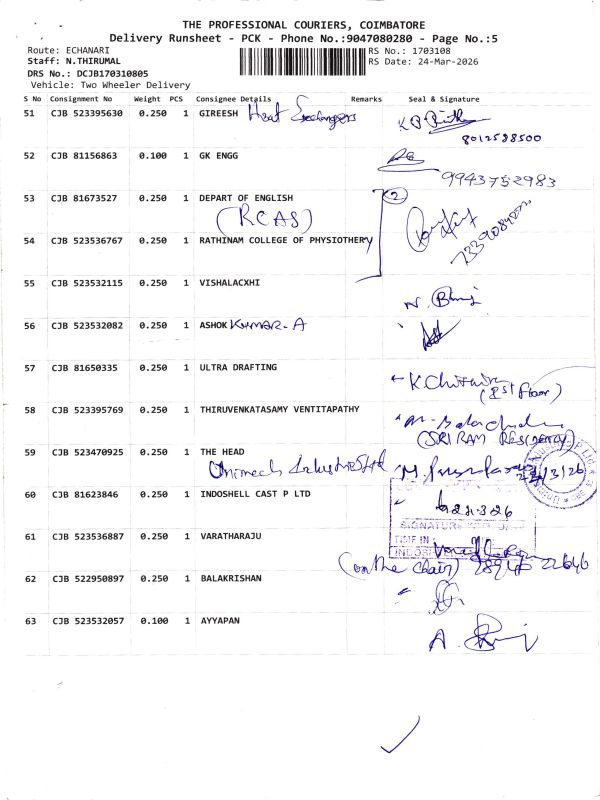 THE PROFESSIONAL COURIERS, COIMBATORE
Delivery Runsheet - PCK - Phone No.:9047080280 - Page No.:5
Route: ECHANARI
RS No.: 1703108
Staff: N.THIRUMAL
RS Date: 24-Mar-2026
DRS No.: DCJB170310805
Vehicle: Two Wheeler Delivery
S No Consignment No Weight PCS Consignee Details Remarks Seal & Signature
51 CJB 523395630 0.250 1 GIREESH Heat Exchangers
8012588500
52 CJB 81156863 0.100 1 GK ENGG
9943752983
53 CJB 81673527 0.250 1 DEPART OF ENGLISH 2
(RCAS)
54 CJB 523536767 0.250 1 RATHINAM COLLEGE OF PHYSIOTHERY
55 CJB 523532115 0.250 1 VISHALACXHI
56 CJB 523532082 0.250 1 ASHOK KUMAR-A
57 CJB 81650335 0.250 1 ULTRA DRAFTING
(1st floor)
58 CJB 523395769 0.250 1 THIRUVENKATASAMY VENTITAPATHY
(SRI RAM RESIDENCY)
59 CJB 523470925 0.250 1 THE HEAD
60 CJB 81623846 0.250 1 INDOSHELL CAST P LTD
SIGNATURE
TIME IN
61 CJB 523536887 0.250 1 VARATHARAJU
(on the chair)
62 CJB 522950897 0.250 1 BALAKRISHAN
63 CJB 523532057 0.100 1 AYYAPAN